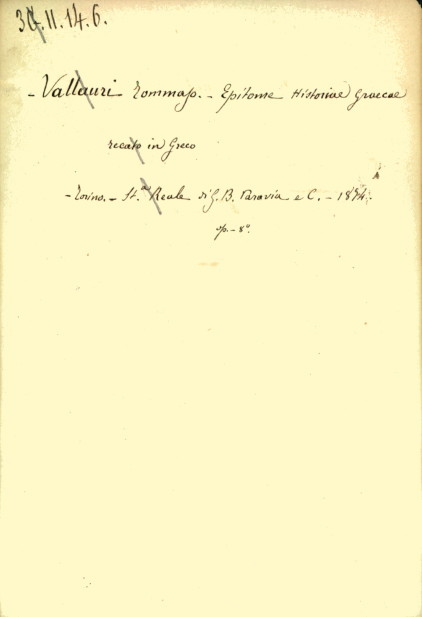 30.11.14.6.
- Vallauri Tommaso. - Epitome Historiae Graecae
recato in Greco
- Torino. - St.ª Reale di G. B. Paravia e C. - 1874.
op. - 8º.